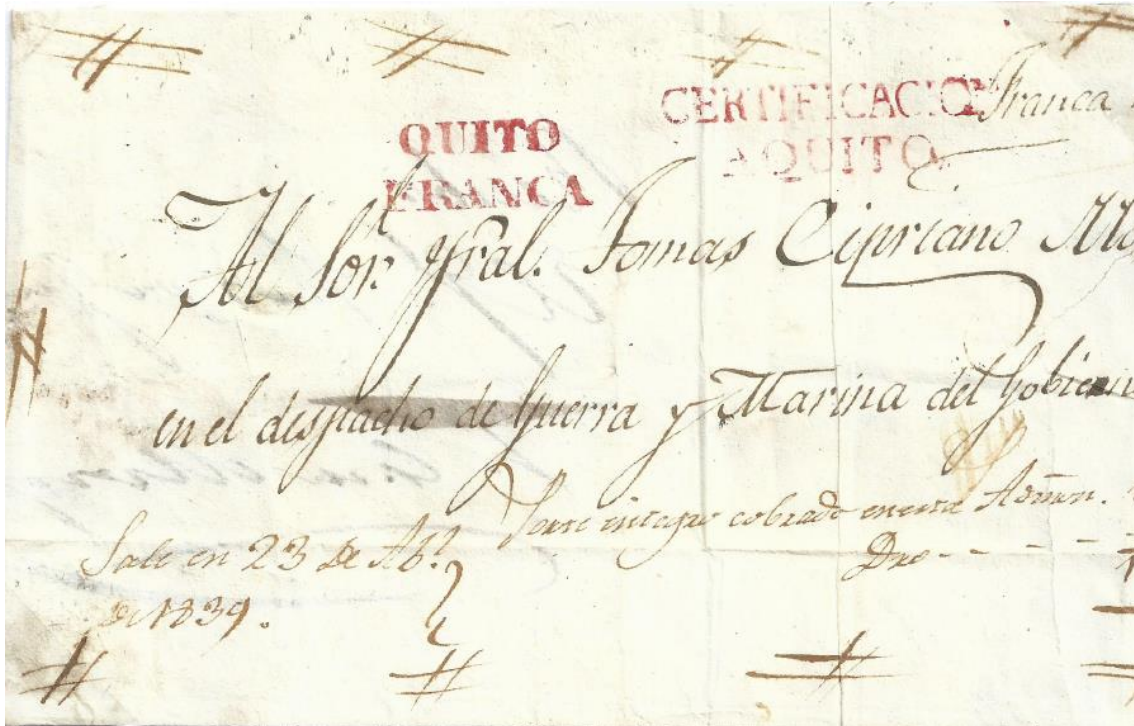 QUITO
FRANCA
CERTIFICACION
A QUITO
Franca
Al Sor. Gral. Tomas Cipriano Mo
en el despacho de Guerra y Marina del Gobiern
integro cobrado en esta Admon.
Dro - - - - -
Sale en 23 de Abl.
de 1839.